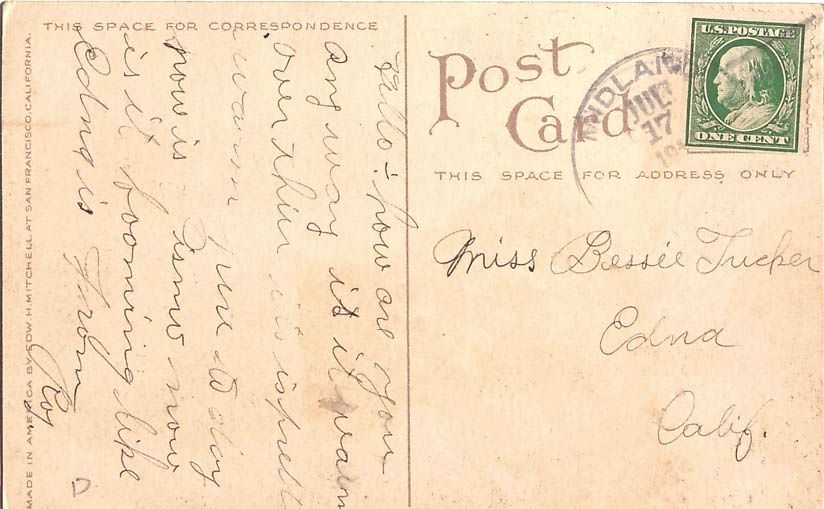 THIS SPACE FOR CORRESPONDENCE
Hello - how are you
any way is it warm
over thier it is
warm here to day
how is now
is it booming like
Edna is From
Roy
MADE IN AMERICA BY EDW. H. MITCHELL AT SAN FRANCISCO, CALIFORNIA.
Post
Card
THIS SPACE FOR ADDRESS ONLY
MIDLA
JUL
17
U.S. POSTAGE
ONE CENT
Miss Bessie Tucker
Edna
Calif.